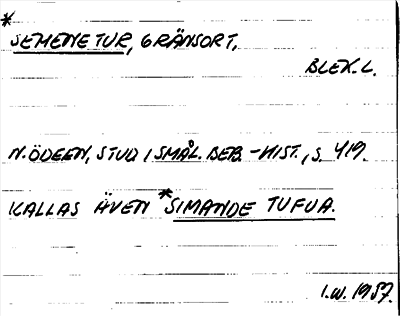 *
SEMENETUR, GRÄNSORT,
BLEK. L.
N. ÖDEEN, STUD I SMÅL. BEB.-HIST., S. 419.
KALLAS ÄVEN *SIMANDE TUFUA.
I.W. 1957.